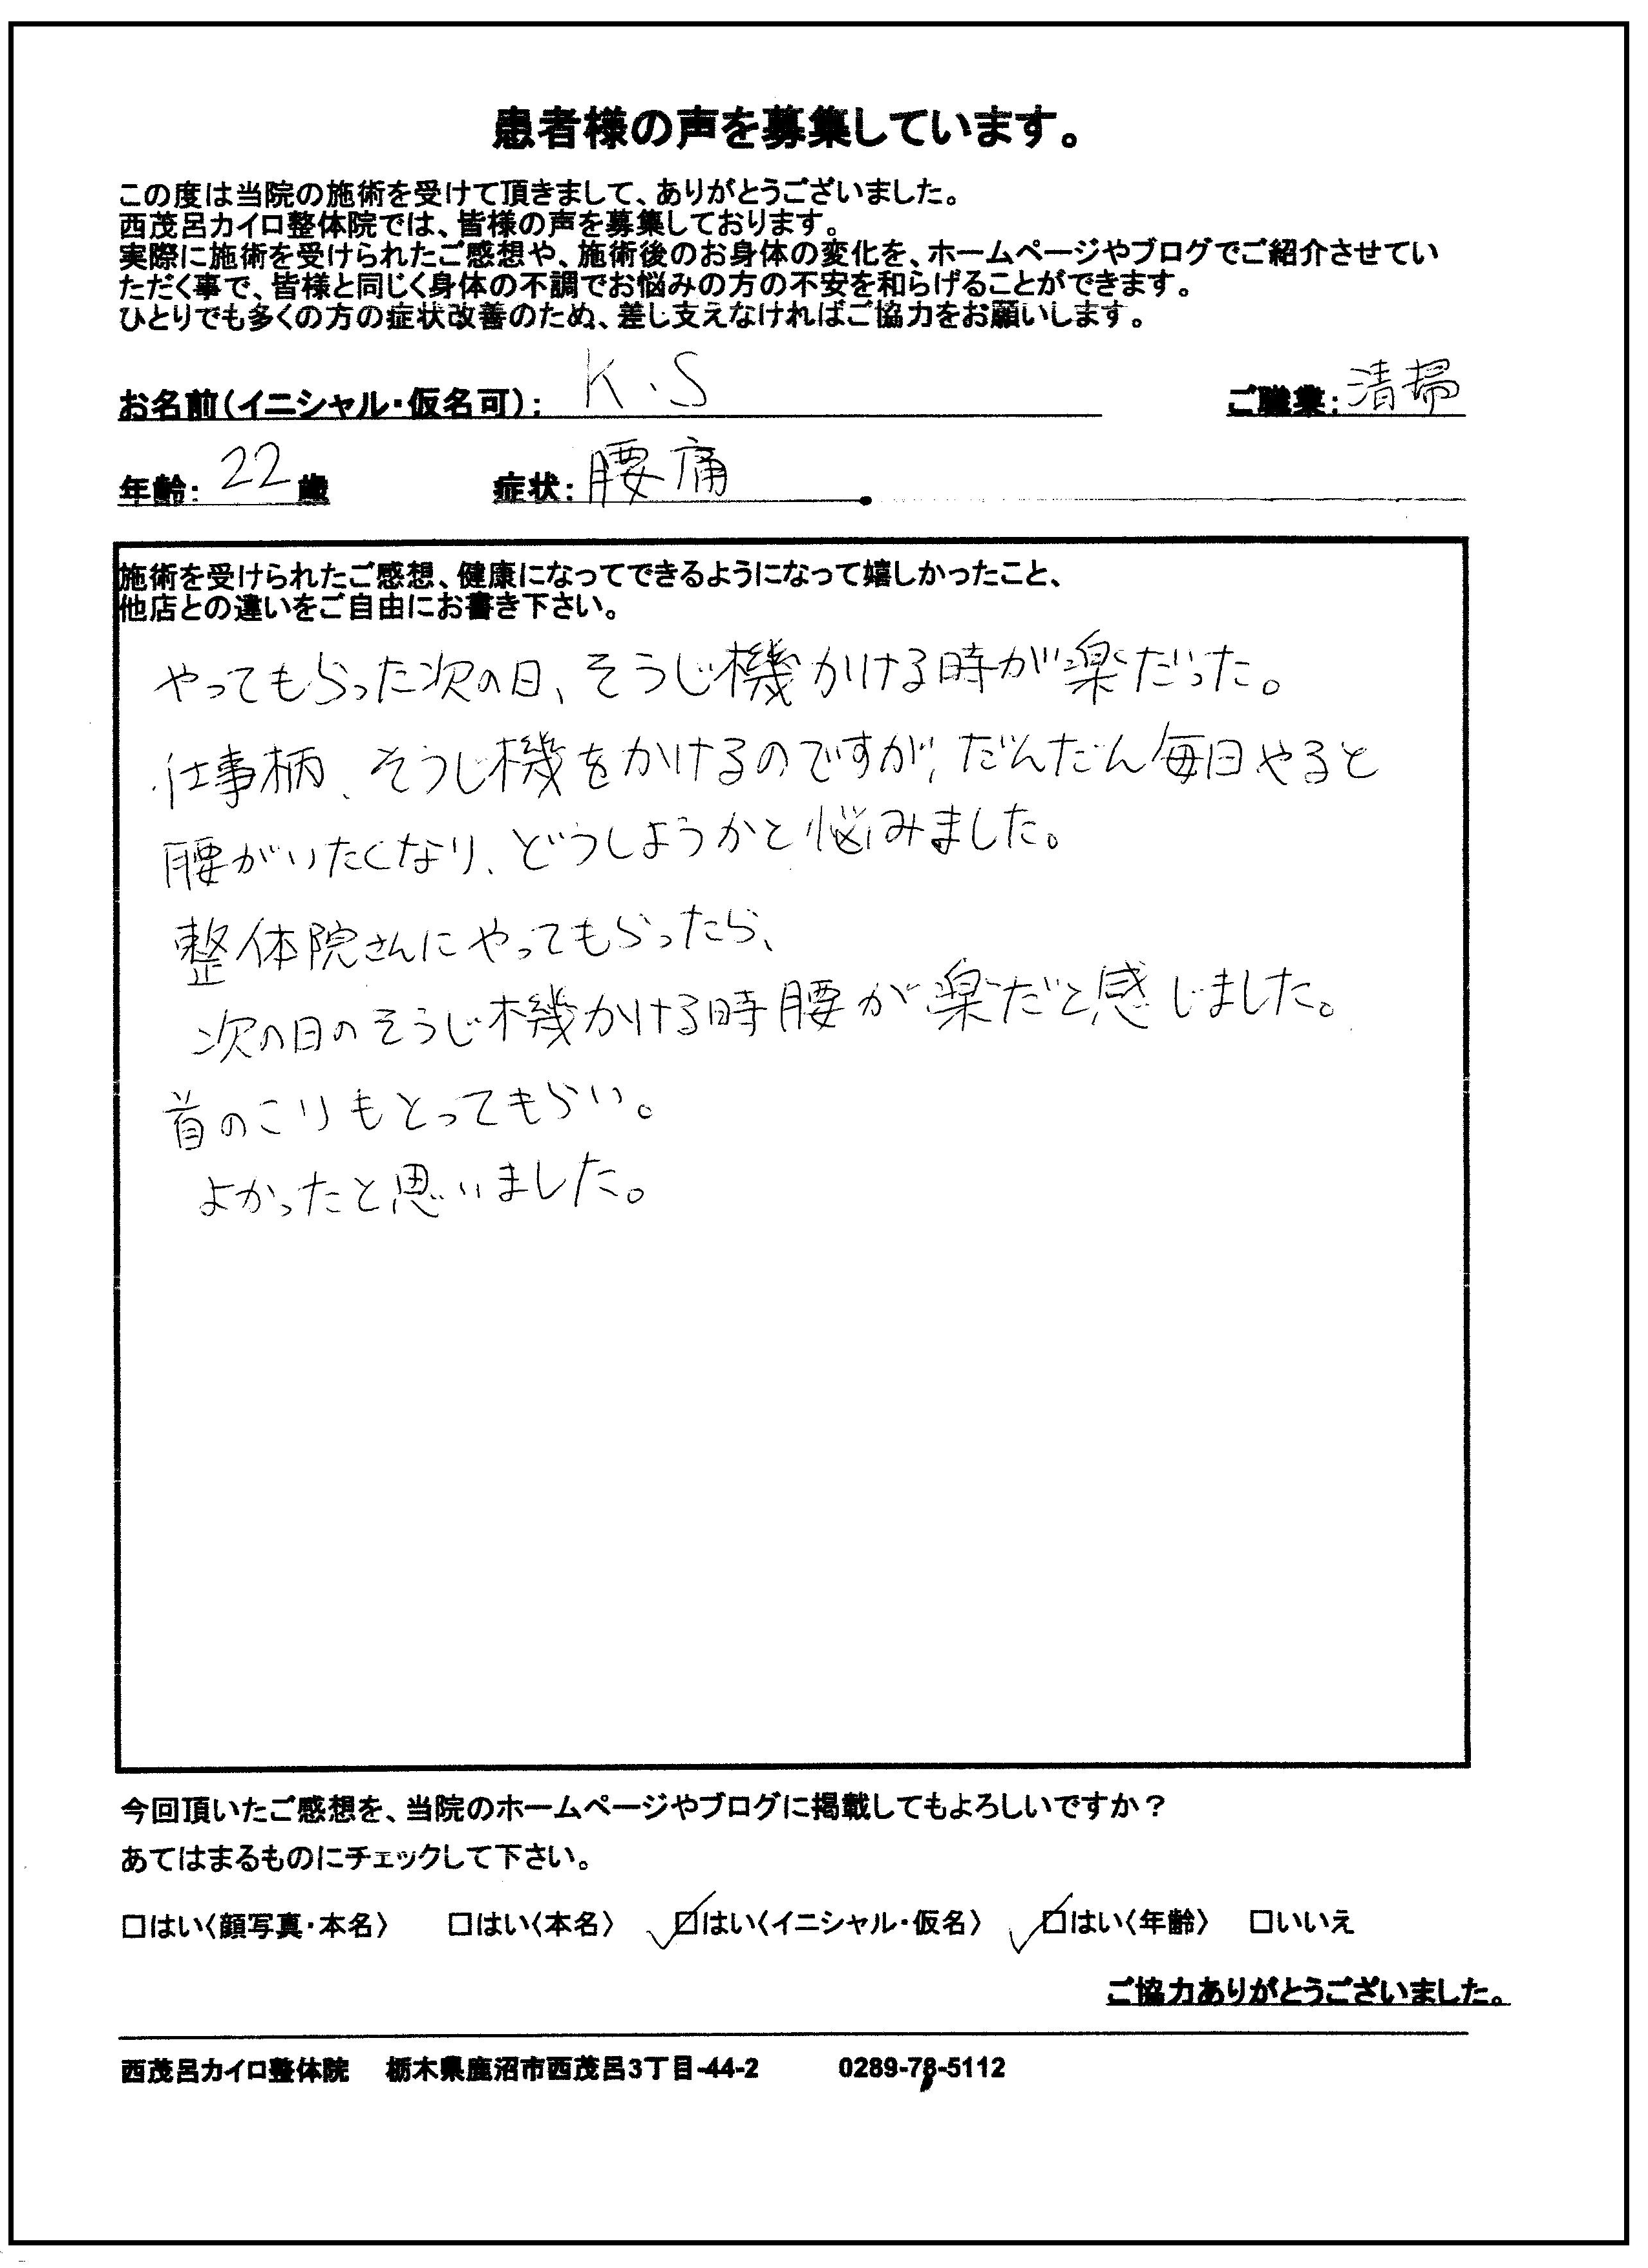 患者様の声を募集しています。
この度は当院の施術を受けて頂きまして、ありがとうございました。
西茂呂カイロ整体院では、皆様の声を募集しております。
実際に施術を受けられたご感想や、施術後のお身体の変化を、ホームページやブログでご紹介させてい
ただく事で、皆様と同じく身体の不調でお悩みの方の不安を和らげることができます。
ひとりでも多くの方の症状改善のため、差し支えなければご協力をお願いします。
お名前(イニシャル・仮名可): K.S ご職業: 清掃
年齢: 22 歳 症状: 腰痛
施術を受けられたご感想、健康になってできるようになって嬉しかったこと、
他店との違いをご自由にお書き下さい。
やってもらった次の日、そうじ機かける時が楽だった。
仕事柄、そうじ機をかけるのですが、だんだん毎日やると
腰がいたくなり、どうしようかと悩みました。
整体院さんにやってもらったら、
次の日のそうじ機かける時腰が楽だと感じました。
首のこりもとってもらい。
よかったと思いました。
今回頂いたご感想を、当院のホームページやブログに掲載してもよろしいですか？
あてはまるものにチェックして下さい。
□はい〈顔写真・本名〉 □はい〈本名〉 ☑はい〈イニシャル・仮名〉 ☑はい〈年齢〉 □いいえ
ご協力ありがとうございました。
西茂呂カイロ整体院 栃木県鹿沼市西茂呂3丁目-44-2 0289-78-5112